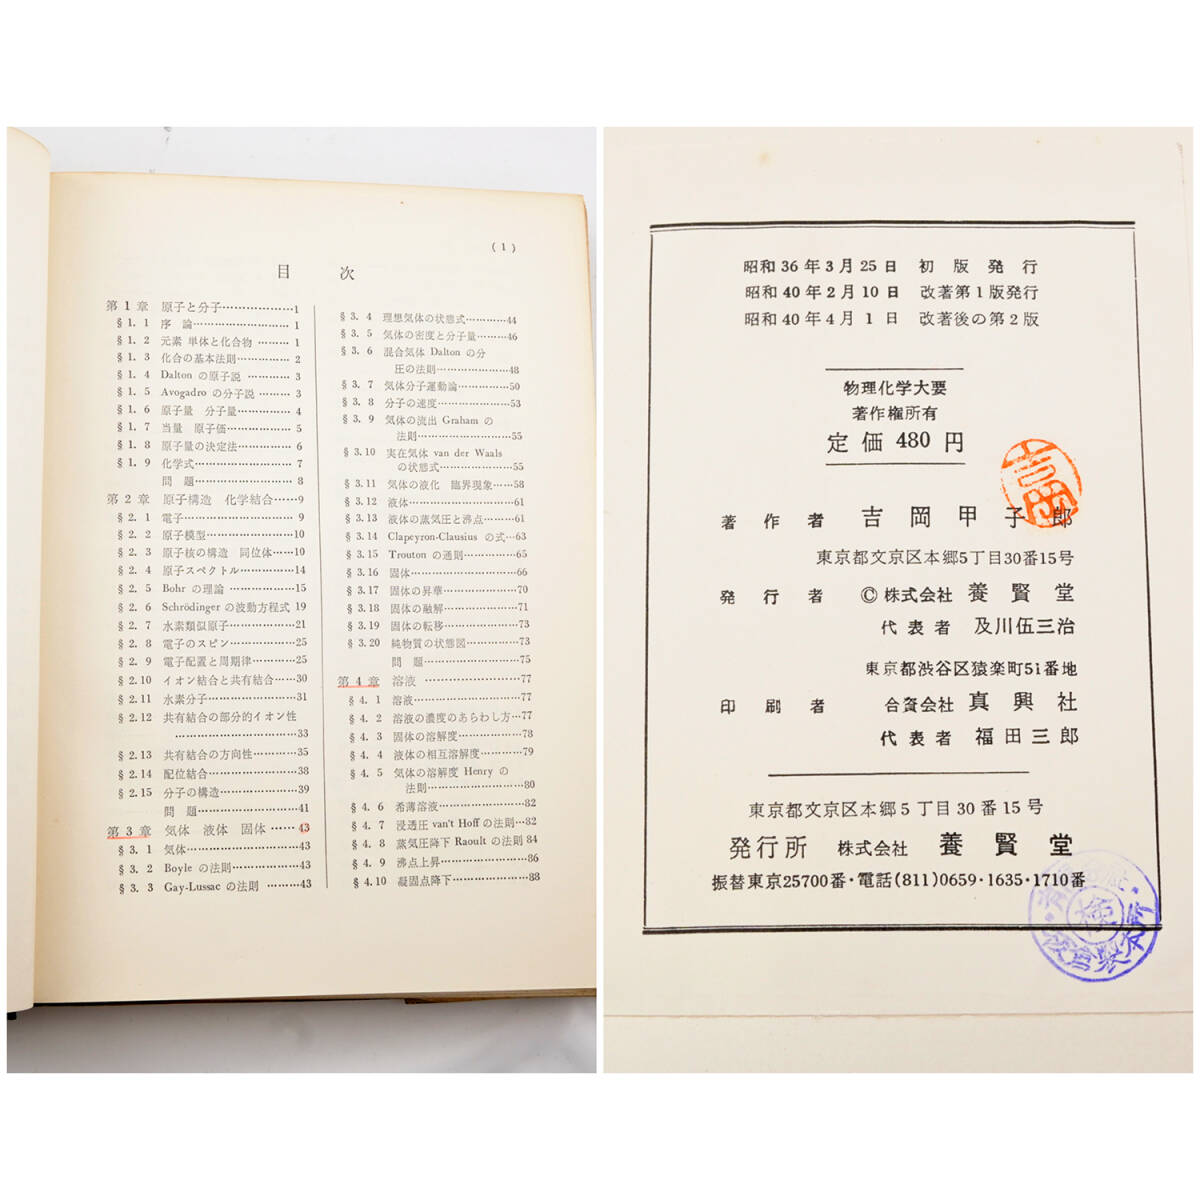 (1)
目 次
第 1 章 原子と分子……………1
§ 1. 1 序 論……………………1
§ 1. 2 元素 単体と化合物 ………1
§ 1. 3 化合の基本法則……………2
§ 1. 4 Dalton の原子説 …………3
§ 1. 5 Avogadro の分子説 ………3
§ 1. 6 原子量 分子量……………4
§ 1. 7 当量 原子価………………5
§ 1. 8 原子量の決定法……………6
§ 1. 9 化学式………………………7
問 題…………………………8
第 2 章 原子構造 化学結合……9
§ 2. 1 電子…………………………9
§ 2. 2 原子模型……………………10
§ 2. 3 原子核の構造 同位体……10
§ 2. 4 原子スペクトル……………14
§ 2. 5 Bohr の理論 ………………15
§ 2. 6 Schrödinger の波動方程式 19
§ 2. 7 水素類似原子………………21
§ 2. 8 電子のスピン………………25
§ 2. 9 電子配置と周期律…………25
§ 2.10 イオン結合と共有結合……30
§ 2.11 水素分子……………………31
§ 2.12 共有結合の部分的イオン性
……………………………33
§ 2.13 共有結合の方向性…………35
§ 2.14 配位結合……………………38
§ 2.15 分子の構造…………………39
問 題…………………………41
第 3 章 気体 液体 固体 ……43
§ 3. 1 気体…………………………43
§ 3. 2 Boyle の法則………………43
§ 3. 3 Gay-Lussac の法則 ………43
§ 3. 4 理想気体の状態式…………44
§ 3. 5 気体の密度と分子量………46
§ 3. 6 混合気体 Dalton の分
圧の法則……………………48
§ 3. 7 気体分子運動論……………50
§ 3. 8 分子の速度…………………53
§ 3. 9 気体の流出 Graham の
法則…………………………55
§ 3.10 実在気体 van der Waals
の状態式……………………55
§ 3.11 気体の液化 臨界現象……58
§ 3.12 液体…………………………61
§ 3.13 液体の蒸気圧と沸点………61
§ 3.14 Clapeyron-Clausius の式…63
§ 3.15 Trouton の通則……………65
§ 3.16 固体…………………………66
§ 3.17 固体の昇華…………………70
§ 3.18 固体の融解…………………71
§ 3.19 固体の転移…………………73
§ 3.20 純物質の状態図……………73
問 題…………………………75
第 4 章 溶液 …………………77
§ 4. 1 溶液…………………………77
§ 4. 2 溶液の濃度のあらわし方…77
§ 4. 3 固体の溶解度………………78
§ 4. 4 液体の相互溶解度…………79
§ 4. 5 気体の溶解度 Henry の
法則…………………………80
§ 4. 6 希薄溶液……………………82
§ 4. 7 浸透圧 van't Hoff の法則…82
§ 4. 8 蒸気圧降下 Raoult の法則 84
§ 4. 9 沸点上昇……………………86
§ 4.10 凝固点降下…………………88
昭和36年3月25日 初版発行
昭和40年2月10日 改著第1版発行
昭和40年4月1日 改著後の第2版
物理化学大要
著作権所有
定価 480 円
吉岡
著作者 吉岡甲子郎
東京都文京区本郷5丁目30番15号
発行者 ©株式会社 養賢堂
代表者 及川伍三治
東京都渋谷区猿楽町51番地
印刷者 合資会社 真興社
代表者 福田三郎
東京都文京区本郷5丁目30番15号
発行所 株式会社 養賢堂
振替東京25700番・電話(811)0659・1635・1710番
検